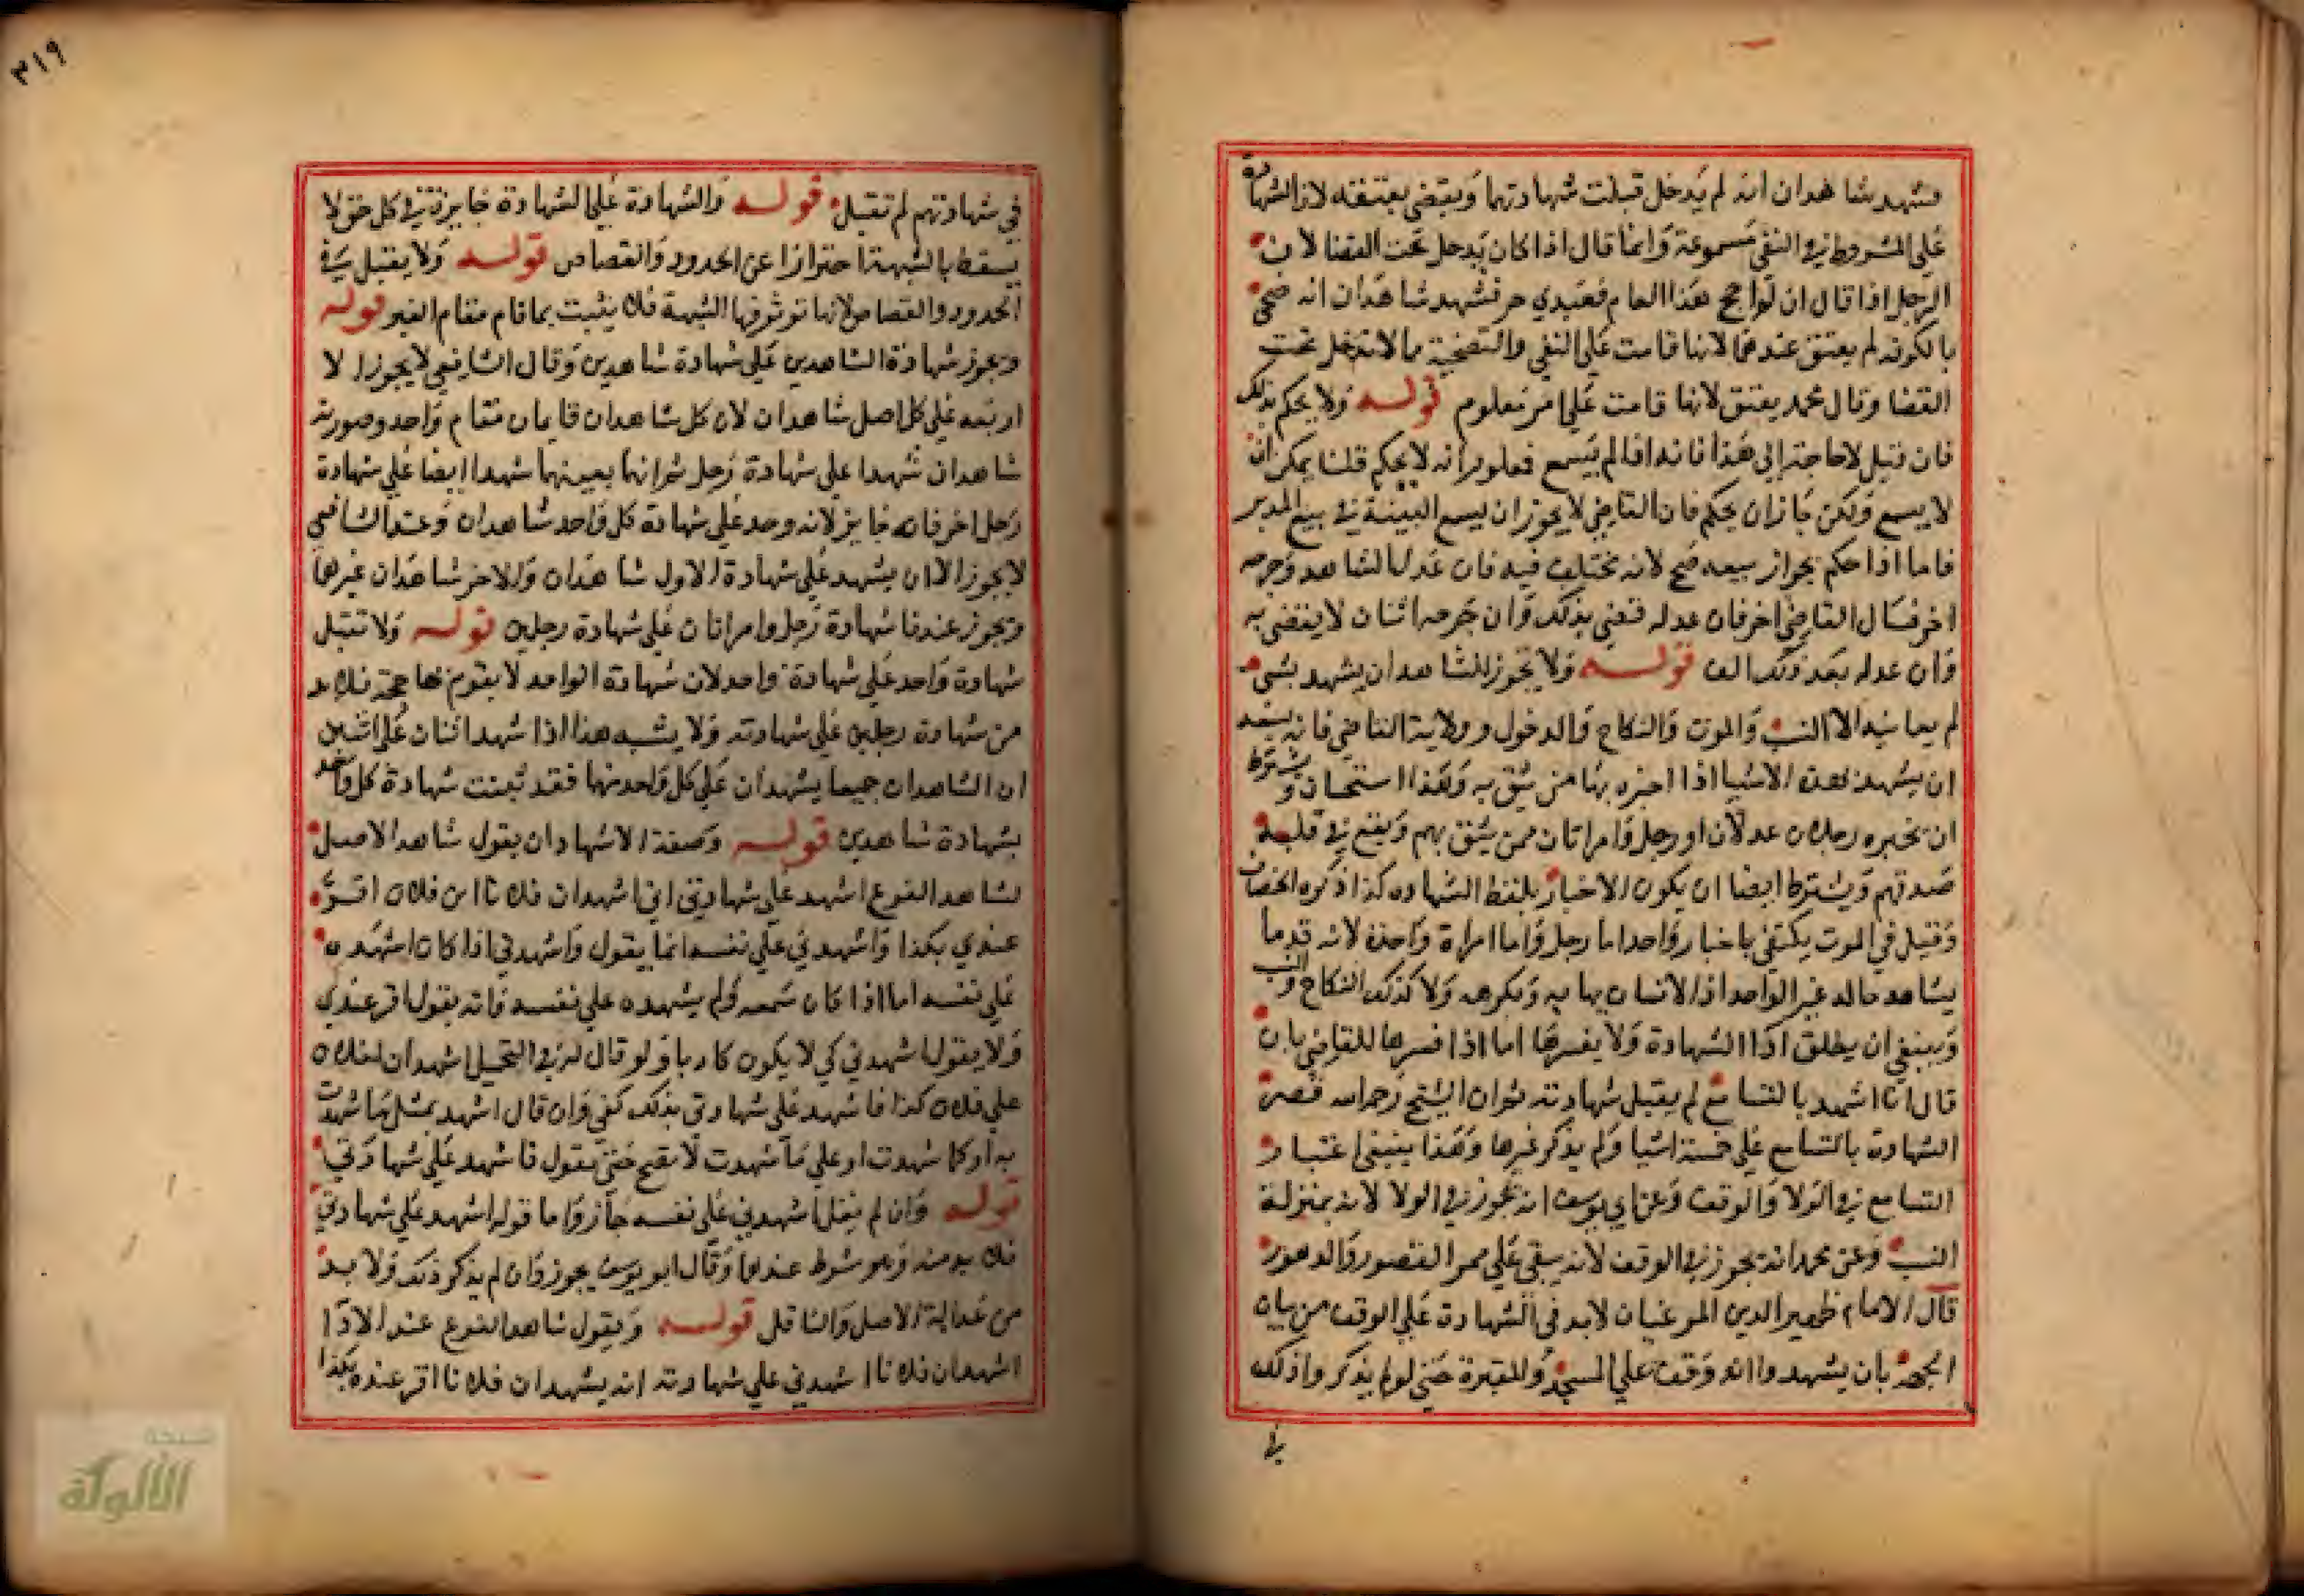 فشهد شاهدان انه لم يدخل قبلت شهادتهما ويقضى بعتقه لان الشهادة
على الشروط في النفي مسموعة وانما قال اذا كان يدخل تحت القضا لان
الرجل اذا قال ان لم احج هذا العام فعبدي حر فشهد شاهدان انه ضحى
بالكوفة لم يعتق عندهما لانها قامت على النفي والتضحية مما لا تدخل تحت
القضا وقال محمد يعتق لانها قامت على امر معلوم قوله ولا يحكم بذلك
فان قيل لا حاجة الى هذا فانه اذا لم يسمع فمعلوم انه لا يحكم قلنا يمكن ان
لا يسمع ولكن جاز ان يحكم فان القاضي لا يجوز ان يسمع البينة في بيع المدبر
فاما اذا حكم بجواز بيعه صح لانه مختلف فيه فان عدل الشاهد وجرحه
اخر فسال القاضي اخر فان عدله قضى بذلك وان جرحه اثنان لا يقضى به
وان عدله بعد ذلك الف قوله ولا يجوز للشاهد ان يشهد بشي
لم يعاينه الا النسب والموت والنكاح والدخول وولاية القاضي فانه يسعه
ان يشهد بهذه الاشيا اذا اخبره بها من يثق به وهذا استحسان ويشترط
ان يخبره رجلان عدلان او رجل وامراتان ممن يثق بهم ويقع في قلبه
صدقهم ويشترط ايضا ان يكون الاخبار بلفظ الشهاده كذا ذكره الخصاف
وقيل في الموت يكتفي باخبار واحد اما رجل واما امراة واحدة لانه قد ما
يشاهد حاله غير الواحد اذ الانسان يهابه ويكرهه ولا كذلك النكاح والنسب
وينبغي ان يطلق اداا الشهادة ولا يفسرها اما اذا فسرها للقاضي بان
قال انا اشهد بالتسامع لم يقبل شهادته ثم ان الشيخ رحمه الله قصر
الشهادة بالتسامع على خمسة اشيا ولم يذكر غيرها وهذا ينبغي اعتبار
التسامع في الولا والوقف وعن ابي يوسف انه يجوز في الولا لانه بمنزلة
النسب وعن محمد انه يجوز في الوقف لانه يبقى على ممر العصور والدهور
قال الامام ظهير الدين المرغينان لابد في الشهادة على الوقف من بيان
الجهة بان يشهدوا انه وقف على المسجد والمقبرة حتى لو لم يذكروا ذلك
في
٣١٩
في شهادتهم لم تقبل قوله والشهادة على الشهادة جايزة في كل حق لا
يسقط بالشبهة احترازا عن الحدود والقصاص قوله ولا يقبل في
الحدود والقصاص لانها توثر فيها الشبهة فلا يثبت بما قام مقام الغير قوله
ويجوز شهادة الشاهدين على شهادة شاهدين وقال الشافعي لا يجوز الا
اربعه على كل اصل شاهدان لان كل شاهدان قايمان مقام واحد وصورته
شاهدان شهدا على شهادة رجل ثم انهما بعينهما شهدا ايضا على شهادة
رجل اخر فانه جايز لانه وجد على شهادة كل واحد شاهدان وعند الشافعي
لا يجوز الا ان يشهد على شهادة الاول شاهدان وللاخر شاهدان غيرهما
ويجوز عندنا شهادة رجل وامراتان على شهادة رجلين قوله ولا تقبل
شهادة واحد على شهادة واحد لان شهادة الواحد لا يقوم بها حجة فلابد
من شهادة رجلين على شهادته ولا يشبه هذا اذا شهد اثنان على اثنين
ان الشاهدان جميعا يشهدان على كل واحد منهما فقد ثبتت شهادة كل واحد
بشهادة شاهدين قوله وصفة الاشهاد ان يقول شاهد الاصل
لشاهد الفرع اشهد على شهادتي اني اشهد ان فلانا ابن فلان اقر
عندي بكذا واشهدني على نفسه انما يقول واشهدني اذا كان اشهده
على نفسه اما اذا كان سمعه ولم يشهده على نفسه فانه يقول اقر عندي
ولا يقول اشهدني كي لا يكون كاذبا ولو قال له في التحميل اشهد ان لفلان
على فلان كذا فاشهد على شهادتي بذلك كفى وان قال اشهد بمثل ما شهدت
به او كما شهدت او على ما شهدت لا يصح حتى يقول فاشهد على شهادتي
قوله وان لم يقل اشهدني على نفسه جاز واما قوله اشهد على شهادتي
فلا بد منه وهو شرط عندهما وقال ابو يوسف يجوز وان لم يذكر ذلك ولا بد
من عدالة الاصل والناقل قوله ويقول شاهد الفرع عند الادا
اشهد ان فلانا اشهدني على شهادته انه يشهد ان فلانا اقر عنده بكذا
شبكة
الألوكة